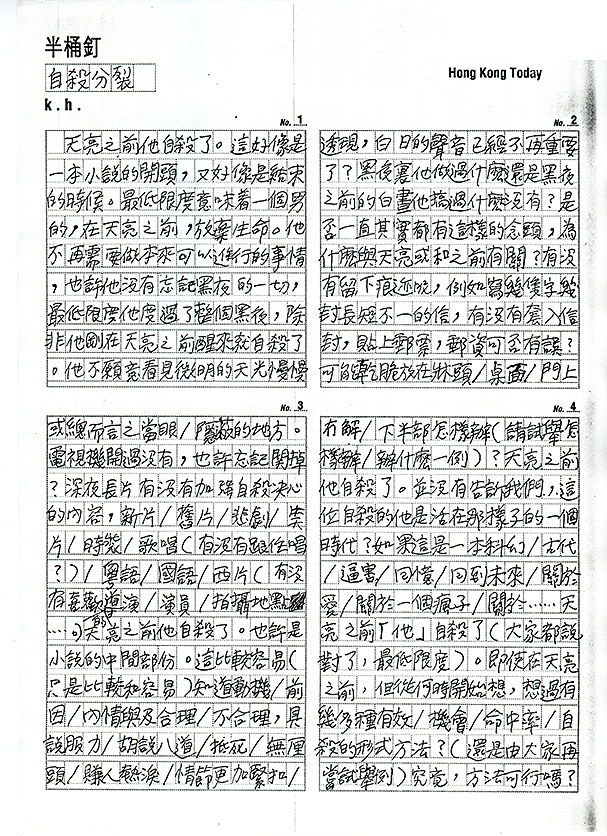 半桶釘
自殺分裂
Hong Kong Today
k.h.
No. 1
天亮之前他自殺了。這好像是
一本小說的開頭,又好像是結束
的時候。最低限度意味着一個男
的,在天亮之前,放棄生命。他
不再需要做本來可以進行的事情
,也許他沒有忘記黑夜的一切,
最低限度他度過了整個黑夜,除
非他剛在天亮之前醒來就自殺了
。他不願意看見微明的天光慢慢
No. 2
透現,白日的聲音已經不再重要
了?黑夜裏他做過什麼還是黑夜
之前的白晝他搞過什麼沒有?是
否一直其實都有這樣的念頭,為
什麼與天亮或和之前有關?有沒
有留下痕迹呢,例如寫幾隻字幾
封長短不一的信,有沒有套入信
封,貼上郵票,郵資可否有誤?
可能乾脆放在牀頭/桌面/門上
No. 3
或總而言之當眼/隱蔽的地方。
電視機開過沒有,也許忘記関掉
?深夜長片有沒有加強自殺決心
的內容,新片/舊片/悲劇/笑
片/時裝/歌唱(有沒有跟住唱
?)/粵語/國語/西片(有沒
有喜歡的導演/演員/拍攝地點
……)天亮之前他自殺了。也許是
小說的中間部份。這比較容易(
只是比較和容易)知道動機/前
因/內情與及合理/不合理,具
說服力/胡說八道/抵死/無厘
頭/賺人熱淚/情節更加緊扣/
No. 4
冇解/下半部怎樣辦(請試舉怎
樣辦/辦什麼一例)?天亮之前
他自殺了。並沒有告訴我們,這
位自殺的他是活在那樣子的一個
時代?如果這是一本科幻/古代
/逼害/回憶/回到未來/關於
愛/關於一個瘋子/關於……天
亮之前「他」自殺了(大家都說
對了,最低限度)。即使在天亮
之前,但從何時開始想,想過有
幾多種有效/機會/命中率/自
殺的形式方法?(還是由大家再
嘗試舉例)究竟,方法可行嗎?